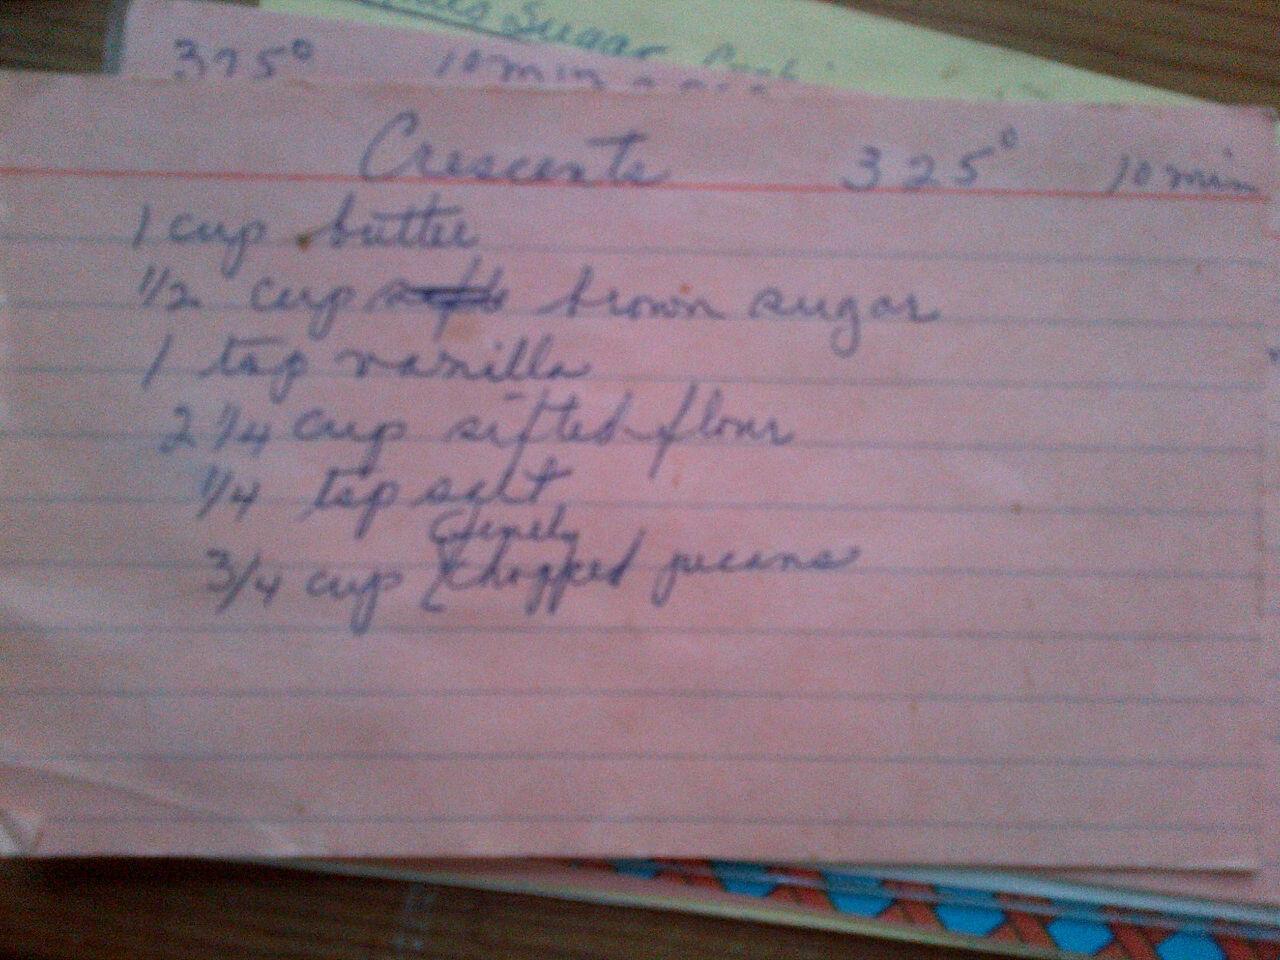 Sugar
375° 10 min
Crescents 325° 10 min
1 cup butter
1/2 cup brown sugar
1 tsp vanilla
2 1/4 cup sifted flour
1/4 tsp salt
finely
3/4 cup chopped pecans